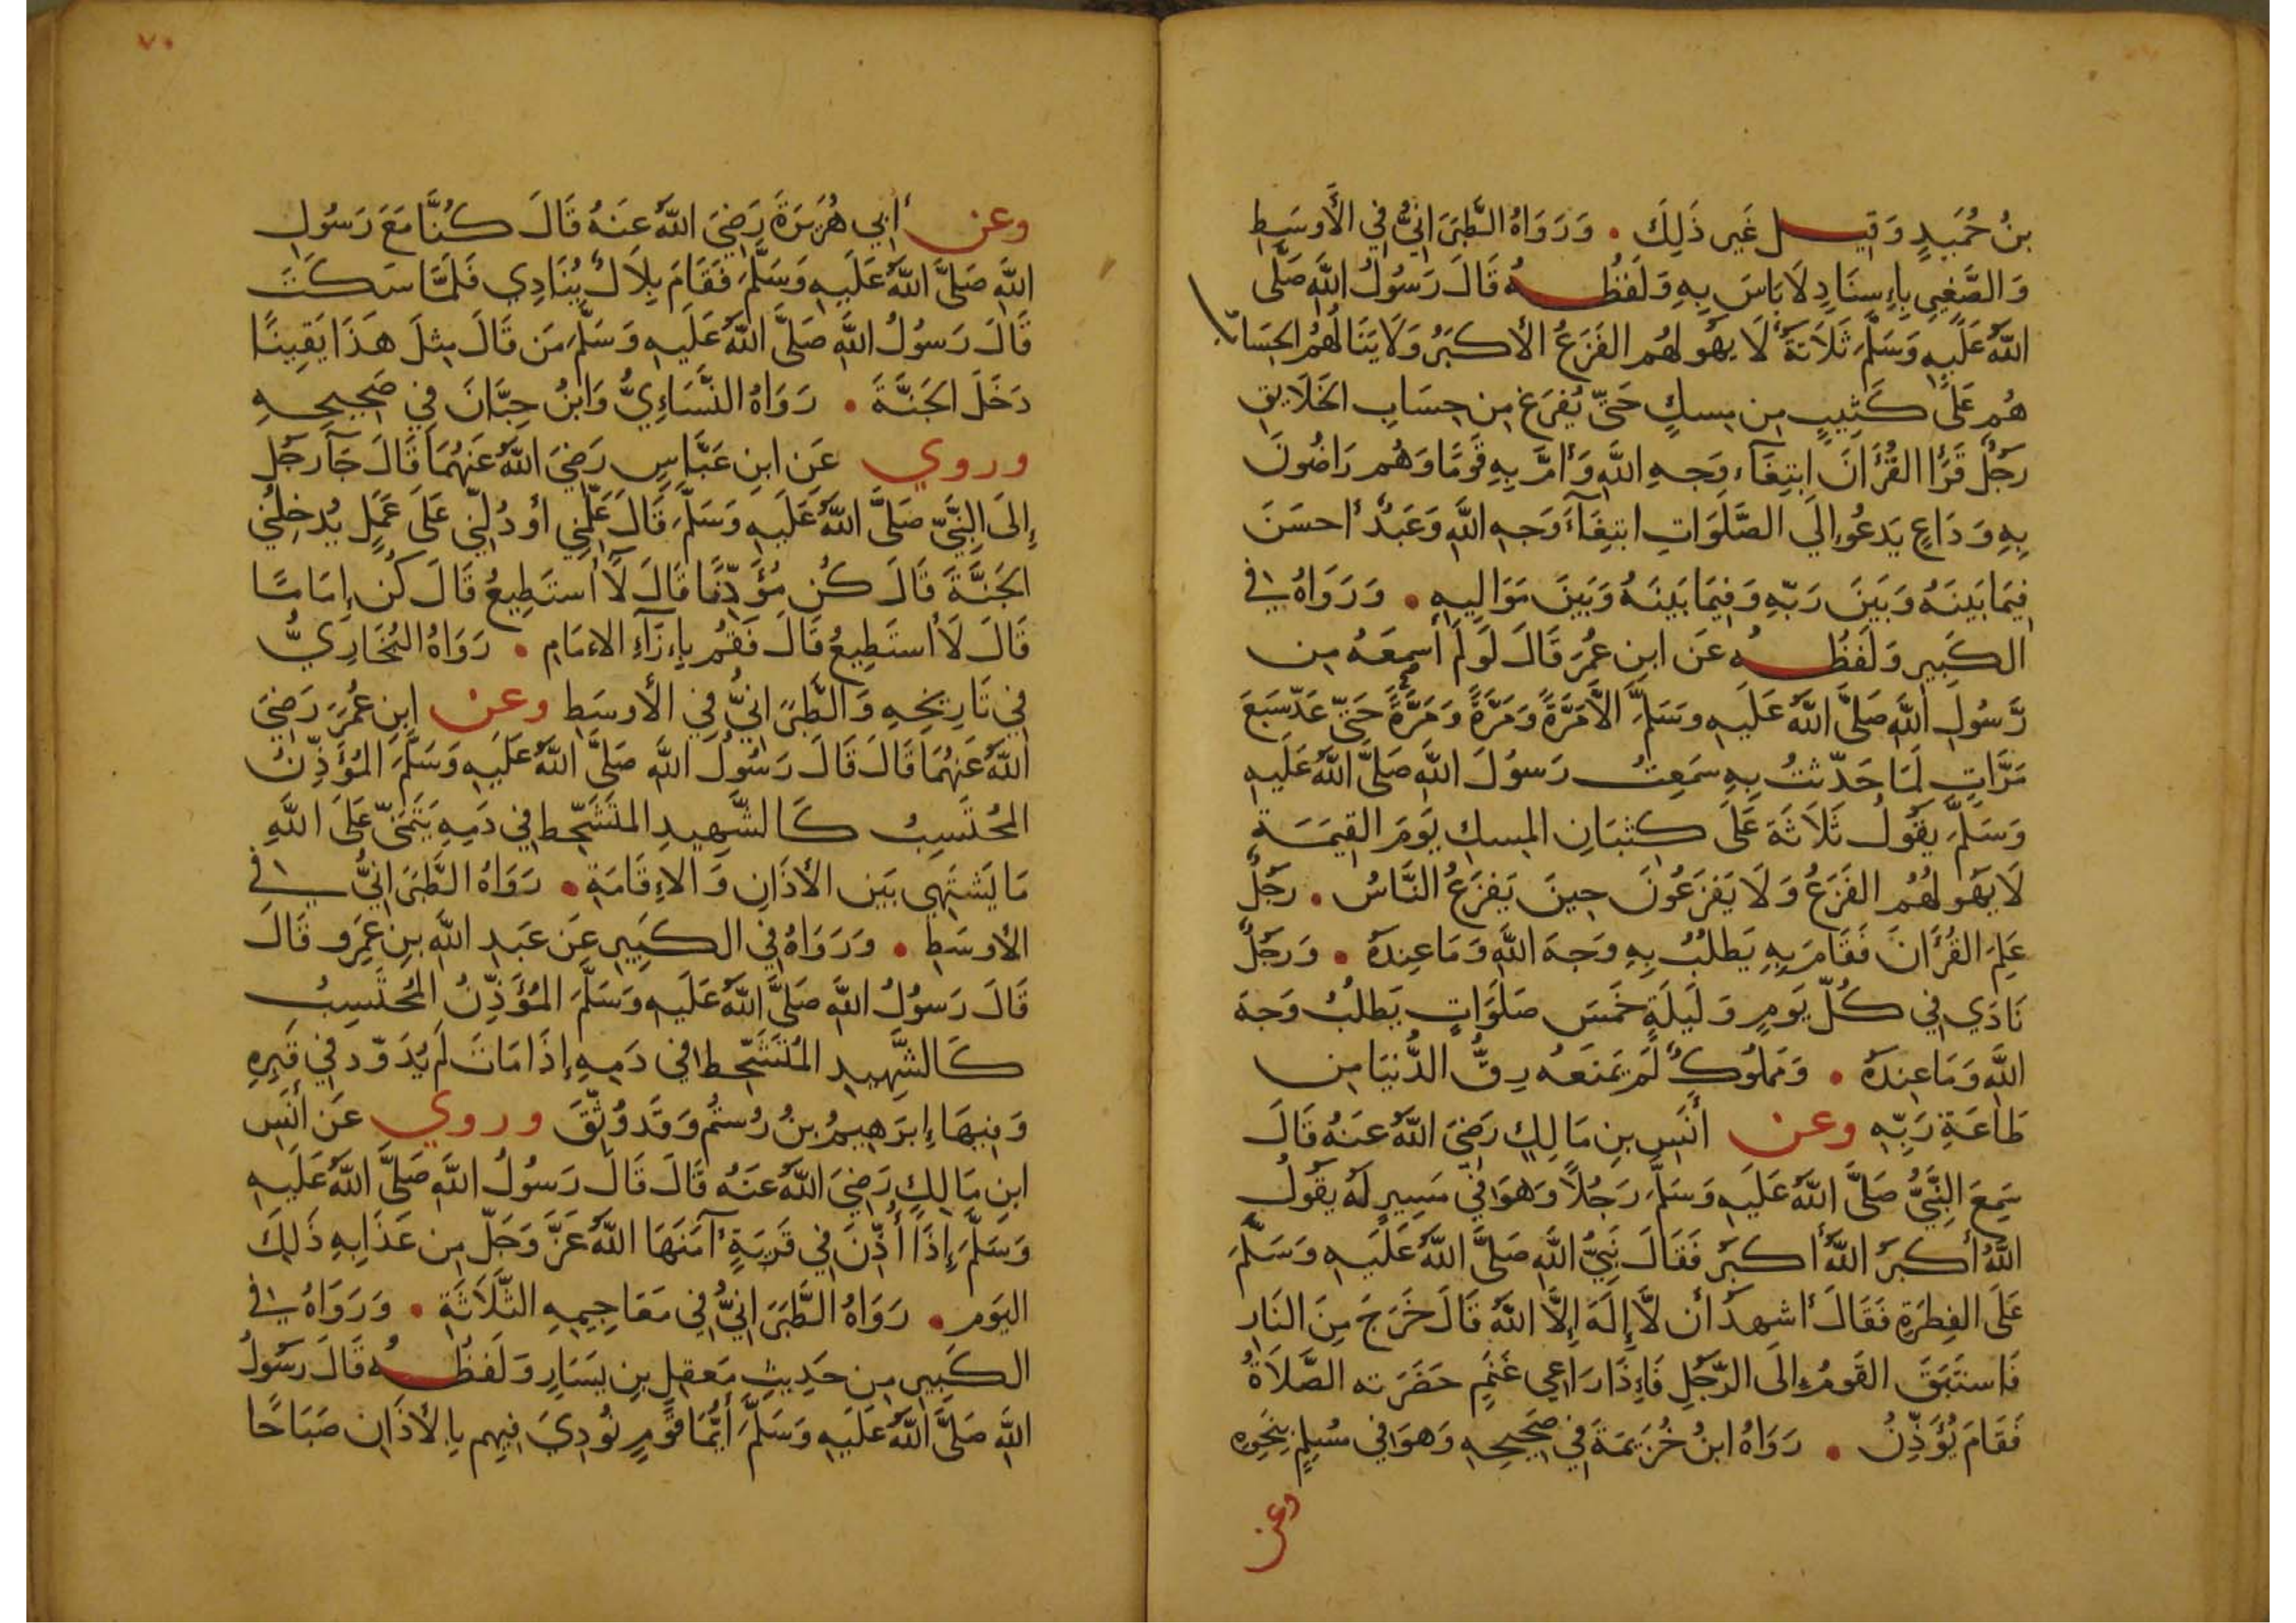 بنُ حُمَيدٍ وَقيل غَير ذَلِكَ . وَرَوَاهُ الطَّبَرَانِيُّ فِي الأَوسَطِ
وَالصَّغِيرِ بِإِسنَادٍ لَا بَاسَ بِهِ وَلَفظُهُ قَالَ رَسُولُ اللَّهِ صَلَّى
اللَّهُ عَلَيهِ وَسَلَّمَ ثَلَاثَةٌ لَا يَهُولُهُم الفَزَعُ الأكبَرُ وَلَا يَنَالُهُمُ الحِسَابُ
هُم عَلَى كَثِيبٍ مِن مِسكٍ حَتَّى يُفرَغَ مِن حِسَابِ الخَلَايِقِ
رَجُلٌ قَرَأَ القُرْأَنَ ابتِغَآءَ وَجهِ اللَّهِ وَأَمَّ بِهِ قَومًا وَهُم رَاضُونَ
بِهِ وَدَاعٍ يَدعُو إِلَى الصَّلَوَاتِ ابتِغَآءَ وَجهِ اللَّهِ وَعَبدٌ أحسَنَ
فِيمَا بَينَهُ وَبَينَ رَبِّهِ وَفِيمَا بَينَهُ وَبَينَ مَوَالِيهِ . وَرَوَاهُ في
الكَبِيرِ وَلَفظُهُ عَن ابنِ عُمَرَ قَالَ لَو لَم أَسمَعهُ مِن
رَّسُولِ اللَّهِ صَلَّى اللَّهُ عَلَيهِ وسَلَّمَ إلَّا مَرَّةً وَمَرَّةً وَمَرَّةً حَتَّى عَدَّ سَبعَ
مَرَّاتٍ لَمَا حَدَّثتُ بِهِ سَمِعتُ رَسولَ اللَّهِ صَلَّى اللَّهُ عَلَيهِ
وَسَلَّمَ يَقُولُ ثَلَاثَةٌ عَلَى كِثبَانِ المِسكِ يَومَ القِيمَةِ
لَا يَهُولُهُمُ الفَزَعُ وَلَا يَفزَعُونَ حِينَ يَفزَعُ النَّاسُ . رَجُلٌ
عَلِمَ القُرْأَنَ فَقَامَ بِهِ يَطلُبُ بِهِ وَجهَ اللَّهِ وَمَا عِندَهُ . وَرَجُلٌ
نَادَى فِي كُلِّ يَومٍ وَلَيلَةٍ خَمسَ صَلَوَاتٍ يَطلُبُ وَجهَ
اللَّهِ وَمَا عِندَهُ . وَمَملُوكٌ لَم يَمنَعهُ رِقُّ الدُّنيَا مِن
طَاعَةِ رَبِّهِ وعن أَنَسِ بنِ مَالِكٍ رَضِيَ اللَّهُ عَنهُ قَالَ
سَمِعَ النَّبِيُّ صَلَّى اللَّهُ عَلَيهِ وَسَلَّمَ رَجُلاً وَهوَ فِي مَسِيرٍ لَهُ يَقُولُ
اللَّهُ أكبَرُ اللَّهُ أكبَر فَقَالَ نَبِيُّ اللَّهِ صَلَّى اللَّهُ عَلَيهِ وَسَلَّمَ
عَلَى الفِطرَةِ فَقَالَ أشهدُ أن لَّا إِلَهَ إِلَّا اللَّهُ قَالَ خَرَجَ مِنَ النَارِ
فَاستَبَقَ القَومُ إِلَى الرَّجُلِ فَإِذَا رَاعِي غَنَمٍ حَضَرَته الصَّلَاةُ
فَقَامَ يُؤَذِّنُ . رَوَاهُ ابنُ خُزَيمَةَ فِي صَحِيحِهِ وَهوَ فِي مُسلِمٍ بِنَحوِهِ
وعن
٧٠
وعن أبِي هُرَيرَةَ رَضِيَ اللَّهُ عَنهُ قَالَ كُنَّا مَعَ رَسُولِ
اللَّهِ صَلَّى اللَّهُ عَلَيهِ وَسَلَّمَ فَقَامَ بِلَالٌ يُنَادِي فَلَمَّا سَكَتَ
قَالَ رَسُولُ اللَّهِ صَلَّى اللَّهُ عَلَيهِ وَسَلَّمَ مَن قَالَ مِثلَ هَذَا يَقِينًا
دَخَلَ الجَنَّةَ . رَوَاهُ النَّسَاءِيُّ وَابنُ حِبَّانَ فِي صَحِيحِهِ
وروي عَن ابنِ عَبَّاسٍ رَضِيَ اللَّهُ عَنهُمَا قَالَ جَآ رَجُل
إِلَى النَّبِيِّ صَلَّى اللَّهُ عَلَيهِ وَسَلَّمَ قَالَ عَلِّمنِي أو دُلَّنِي عَلَى عَمَلٍ يُدخِلُنِي
الجَنَّةَ قَالَ كُن مُؤَذِّنًا قَالَ لَا أستَطِيعُ قَالَ كُن إِمَامًا
قَالَ لَا أستَطِيعُ قَالَ فَقُم بِإِزَآءِ الامَامِ . رَوَاهُ البُخَارِيُّ
فِي تَارِيخِهِ وَالطَّبَرَانِيُّ فِي الأَوسَطِ وعن ابنِ عُمَرَ رَضِيَ
اللَّهُ عَنهُمَا قَالَ قَالَ رَسُولُ اللَّهِ صَلَّى اللَّهُ عَلَيهِ وَسَلَّمَ المُؤَذِّنُ
المُحتَسِبُ كَالشَّهِيدِ المتَشَحِّطِ فِي دَمِهِ يَتَمَنَّى عَلَى اللَّهِ
مَا يَشتَهِي بَين الأَذَانِ وَالإِقَامَةِ . رَوَاهُ الطَّبَرَانِيُّ في
الأَوسَطِ . وَرَوَاهُ فِي الكَبِيرِ عَن عَبدِ اللَّهِ بنِ عَمرٍو قَالَ
قَالَ رَسُولُ اللَّهِ صَلَّى اللَّهُ عَلَيهِ وَسَلَّمَ المُؤَذِّنُ المُحتَسِبُ
كَالشَّهِيدِ المُتَشَحِّطِ فِي دَمِهِ إِذَا مَاتَ لَم يُدَوِّد فِي قَبرِهِ
وَفِيهَا إِبرَهِيمُ بنُ رُستُم وَقَد وُثِّقَ وروي عَن أَنَسِ
ابنِ مَالِكٍ رَضِيَ اللَّهُ عَنهُ قَالَ قَالَ رَسُولُ اللَّهِ صَلَّى اللَّهُ عَلَيهِ
وَسَلَّمَ إِذَا أُذِّنَ فِي قَريَةٍ آمَنَهَا اللَّهُ عَزَّ وَجَلّ مِن عَذَابِهِ ذَلِكَ
اليَوم . رَوَاهُ الطَّبَرَانِيُّ فِي مَعَاجِيمِهِ الثَّلَاثَةِ . وَرَوَاهُ في
الكَبِيرِ مِن حَدِيثِ مَعقِلِ بنِ يَسَارٍ وَلَفظُهُ قَالَ رَسُولُ
اللَّهِ صَلَّى اللَّهُ عَلَيهِ وَسَلَّمَ أَيُّمَا قَومٍ نُودِيَ فِيهِم بِالأَذَانِ صَبَاحًا